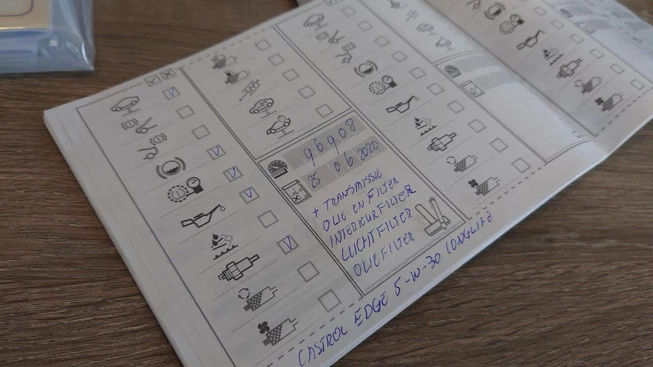 96908
25 06 2020
+ TRANSMISSIE
OLIE EN FILTER
INTERIEURFILTER
LUCHTFILTER
OLIEFILTER
CASTROL EDGE 5-W-30 LONGLIFE